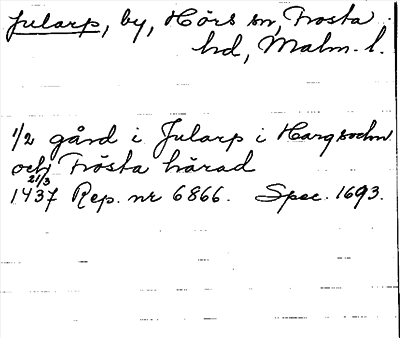 Jularp, by, Hörs sn, Frosta
hd, Malm. l.
1/2 gård i Jularp i Harg sockn
och Frösta härad
21/3
1437 Rep. nr 6866. Spec. 1693.